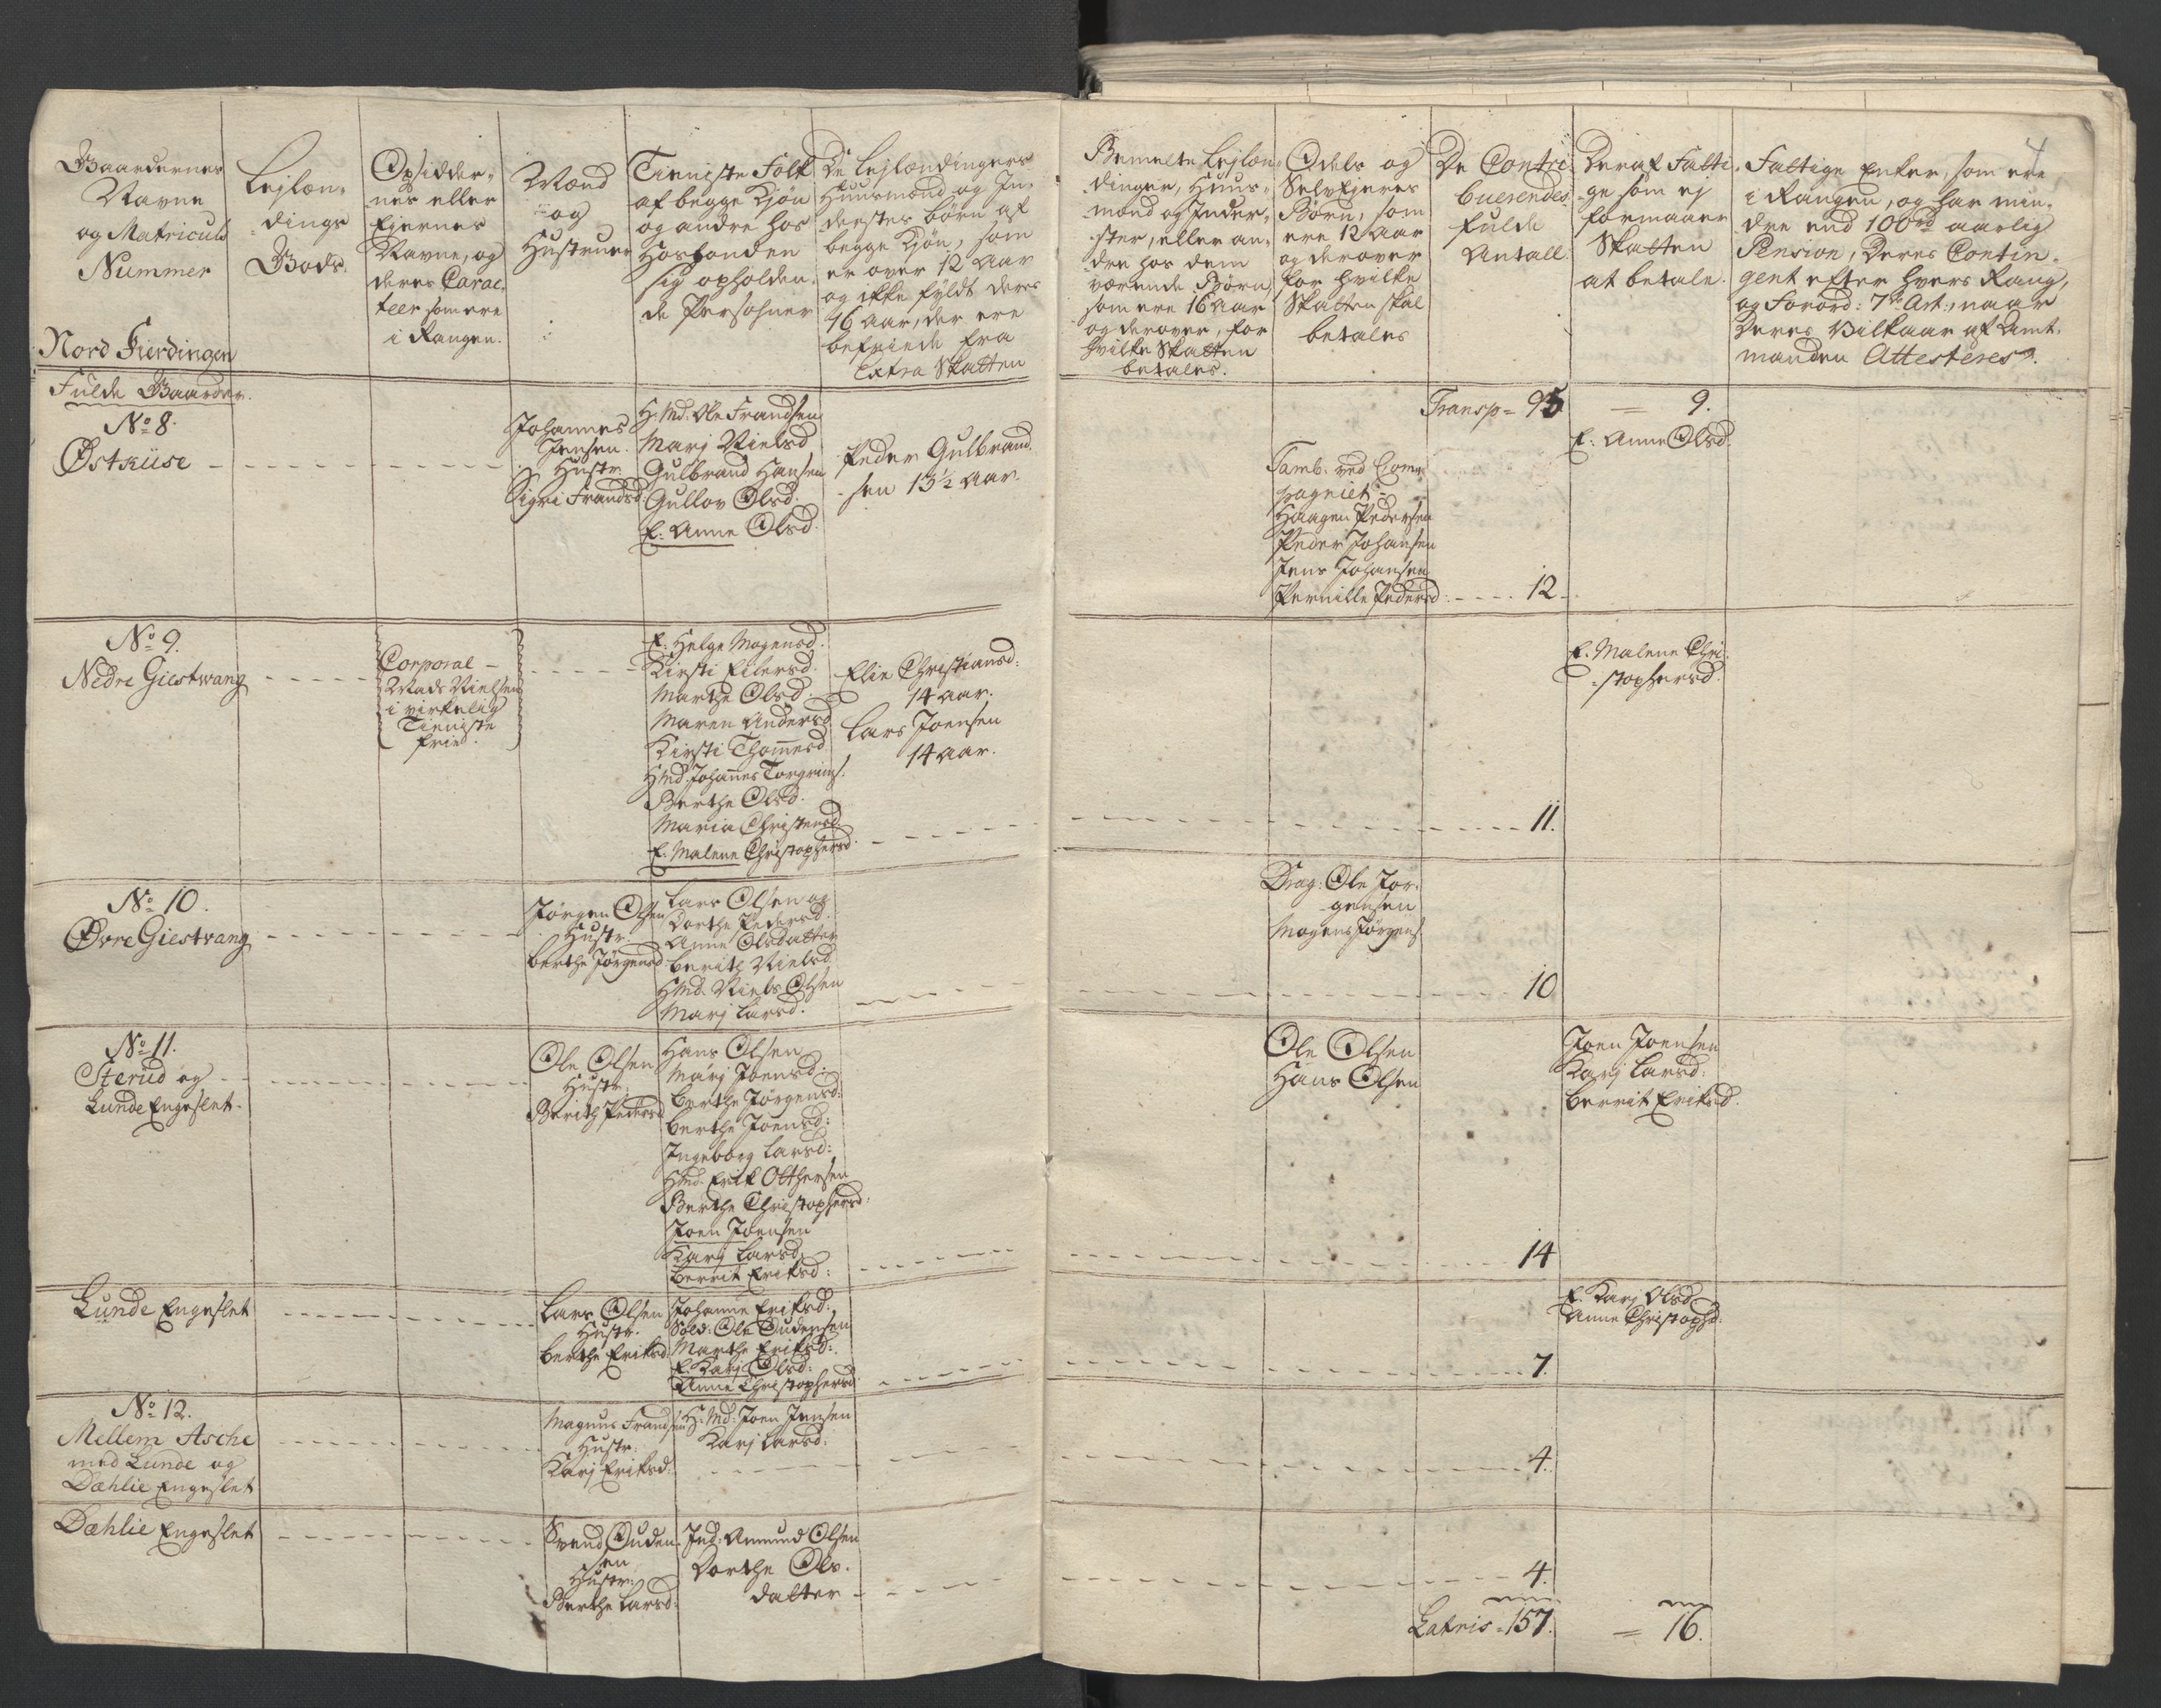 Gaardernes
Navne
og Matriculs
Nummer
Nord Fierdingen
Lejlæn-
dings
Gods.
Opsidder-
nes eller
Ejernes
Navne, og
deres Carac-
teer som ere
i Rangen.
Mænd
og
Hustruer
Tieniste Folk
af begge Kjøn
og andre hos
Hosbonden
sig opholden-
de Persohner
De Lejlændingers
Huusmænd og In-
dersters børn af
begge Kjøn, som
er over 12 Aar
og ikke fyldt deres
16 Aar, der ere
befriede fra
Extra Skatten
Bemelte Lejlæn-
dinger, Huus-
mænd og Inder-
ster, eller an-
dre hos dem
værende Børn,
som ere 16 Aar
og derover, for
hvilke Skatten
betales.
Odels og
Selvejeres
Børn, som
ere 12 Aar
og derover
for hvilke
Skatten skal
betales
De Contri-
buerendes
fulde
Antall
Deraf Fatti-
ge som ej
formaaer
Skatten
at betale.
Fattige Enker, som ere
i Rangen, og har min-
dre end 100 rd aarlig
Pension, Deres Contin-
gent efter hvers Rang,
og Forord: 7de Art., naar
Deres Vilkaar af Amt-
manden Attesteres.
Fulde Gaarder.
Transp = 95 = 9.
No 8.
Østküse
Johannes
Jensen.
Hustr.
Sigri Frandsd.
H. Md. Ole Frandsen
Marj Nielsd
Gulbrand Hansen
Gullov Olsd.
E. Anne Olsd.
Peder Gulbrand-
sen 13½ Aar.
Tamb. ved Com-
pagniet
Haagen Pedersen
Peder Johansen
Jens Johansen
Pernille Pedersd. 12
E. Anne Olsd.
No 9.
Nedre Giestwang
Corporal
Mads Nielsen
i virkelig
Tieniste
frie.
E. Helge Mogensd.
Kirsti Eilersd.
Marthe Olsd.
Maren Andersd
Kirsti Thommesd.
HMd. Johannes Torgrims.
Berthe Olsd.
Maria Christensd
E. Malene Christophersd.
Elie Christiansd:
14 Aar.
Lars Joensen
14 Aar.
11.
E. Malene Chri-
stophersd.
No 10.
Øvre Giestvang
Jørgen Olsen
Hustr.
Berthe Jørgensd
Lars Olsen og
Dorthe Pedersd.
Anne Olsdatter
Berith Nielsd
HMd. Niels Olsen
Marj Larsd.
Drag: Ole Jør-
gensen
Mogens Jørgens
10
No 11.
Sterud og
Lunde Engeslet.
Ole Olsen
Hustr.
Berith Pedersd
Hans Olsen
Marj Joensd.
Berthe Jørgensd:
Berthe Joensd:
Ingeborg Larsd:
HMd. Erik Otthersen
Berthe Christophersd:
Joen Joensen
Karj Larsd
Berrit Eriksd:
Ole Olsen
Hans Olsen
14
Joen Joensen
Karj Larsd:
Berrit Eriksd.
Lunde Engeslet
Lars Olsen
Hustr.
Berthe Eriksd:
Johanne Eriksd:
Sold: Ole Oudensen
Marthe Eriksd:
E. Karj Olsd:
Anne Christophersd
7.
E. Karj Olsd
Anne Christophd:
No 12.
Mellem Asche
med Lunde og
Dæhlie Engeslet
Magnus Frandsen
Hustr:
Karj Eriksd:
H. Md: Joen Jensen
Karj Larsd:
4.
Dæhlie Engeslet
Svend Ouden-
sen
Hustr:
Berthe Larsd:
Ind: Amund Olsen
Dorthe Ols-
datter
4.
Lateris = 157. = 16.